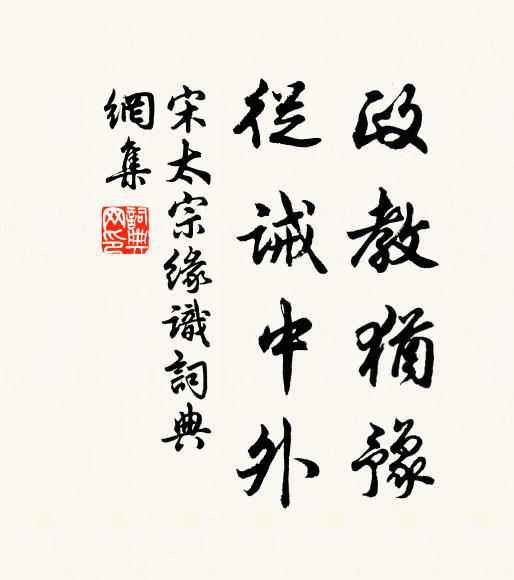 政教猶豫
從誡中外
宋太宗緣識詞典
網集
詞典
网印